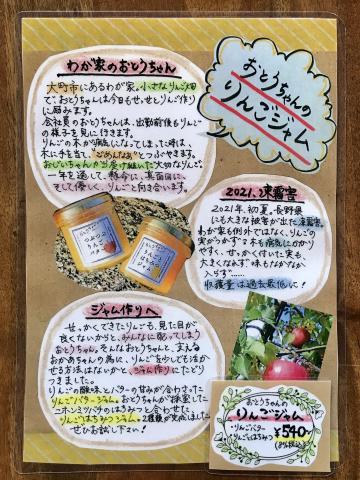 わが家のおとうちゃん
大町市にあるわが家。小さなりんご畑
で、おとうちゃんは今日もせっせとりんご作り
に励みます。
会社員のおとうちゃんは、出勤前後もりんご
の様子を見に行きます。
りんごの木が病気になってしまった時は、
木に手を当て"ごめんなぁ"とつぶやきます。
おじいちゃんから受け継いだ大切なりんご。
一年を通して、懸命に、真面目に、
そして優しく、りんごと向き合います。
おとうちゃんの
りんごジャム
2021、凍霜害
2021年、初夏。長野県
にも大きな被害が出た凍霜害。
わが家も例外ではなく、りんごの
実がつかず、木も病気にかかり
やすく、せっかく付いた実も、
大きくならず、味もなかなか
入らず……
収穫量は過去最低に!
ジャム作りへ
せっかくできたりんごも、見た目が
良くないからと、みんなに配ってしまう
おとうちゃん。そんなおとうちゃんと、支える
おかあちゃんの為に、りんごを少しでも活か
せる方法はないかと、ジャム作りにたどり
つきました。
りんごの酸味とバターの甘みが合わさった
りんごバタージャム。おとうちゃんが採蜜した
ニホンミツバチのはちみつと合わせた
りんごはちみつジャム。2種類が完成しました
ぜひお試し下さい!
おとうちゃんの
りんごジャム
・りんごバター
・りんごとはちみつ
¥540-